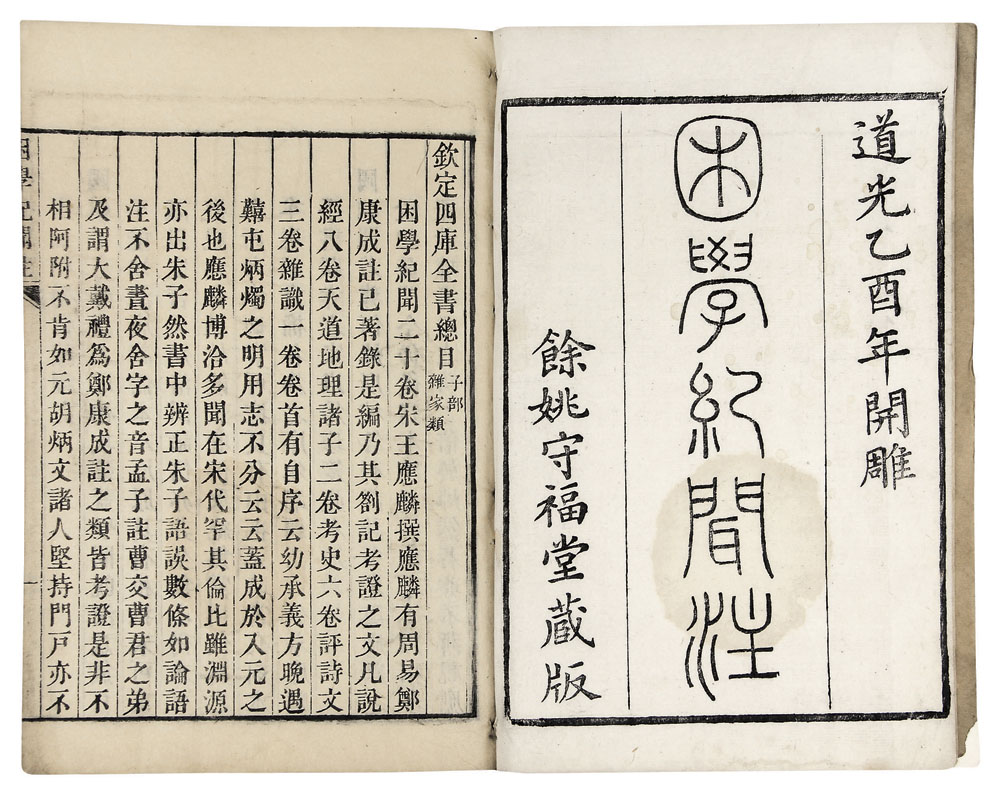 道光乙酉年開雕
困學紀聞注
餘姚守福堂藏版
欽定四庫全書總目 子部 雜家類
困學紀聞二十卷宋王應麟撰應麟有周易鄭
康成註已著錄是編乃其劄記考證之文凡說
經八卷天道地理諸子二卷考史六卷評詩文
三卷雜識一卷卷首有自序云幼承義方晚遇
囏屯炳燭之明用志不分云云蓋成於入元之
後也應麟博洽多聞在宋代罕其倫比雖淵源
亦出朱子然書中辨正朱子語誤數條如論語
注不舍晝夜舍字之音孟子註曹交曹君之弟
及謂大戴禮爲鄭康成註之類皆考證是非不
相阿附不肯如元胡炳文諸人堅持門戸亦不
困學紀聞注